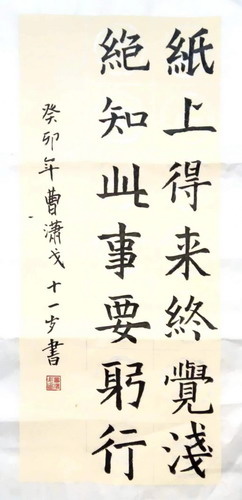 紙上得来終覺淺
絕知此事要躬行
癸卯年曹瀟戈十一歩書